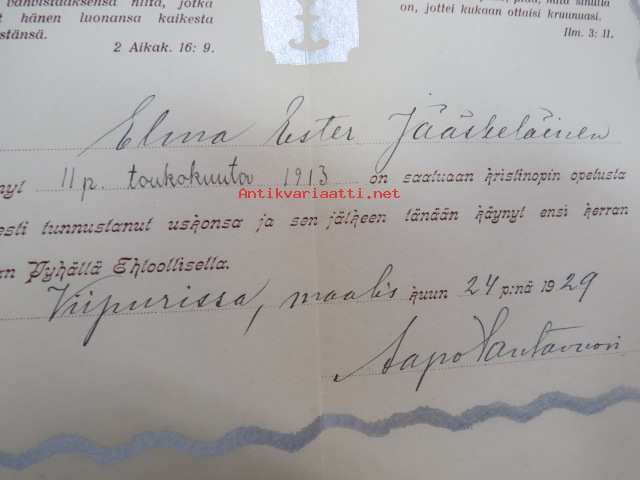 vahvistaaksensa niitä, jotka
t hänen luonansa kaikesta
stänsä.
2 Aikak. 16: 9.
on, jottei kukaan ottaisi kruunuasi.
Ilm. 3: 11.
Elma Ester Jääskeläinen
nyt 11 p. toukokuuta 1913 on saatuaan kristinopin opetusta
Antikvariaatti.net
esti tunnustanut uskonsa ja sen jälkeen tänään käynyt ensi kerran
an Pyhällä Ehtoollisella.
Viipurissa, maalis kuun 24 p:nä 1929
Aapo Vantavuori